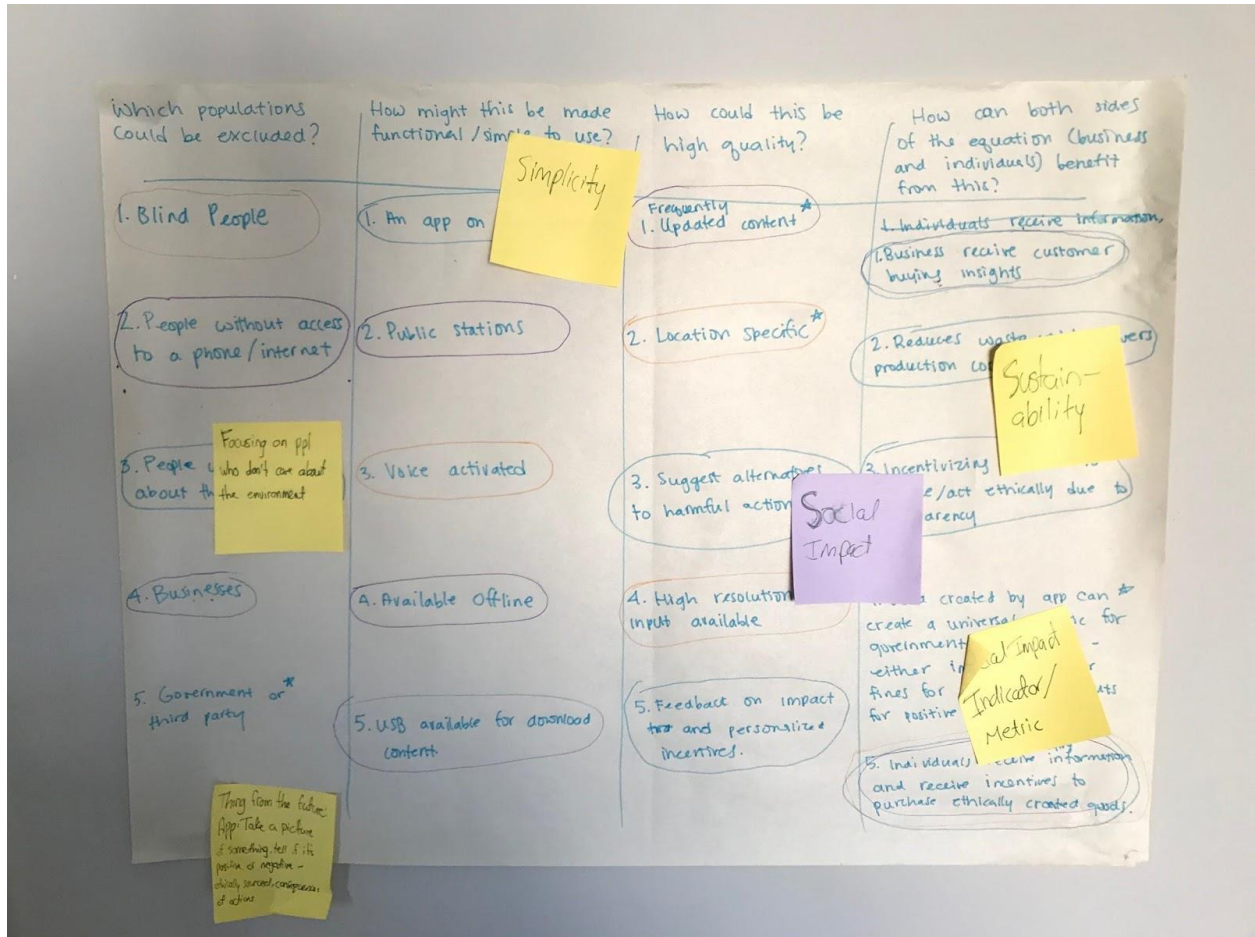 Which populations
could be excluded?
1. Blind People
2. People without access
to a phone/internet
3. People
about th
Focusing on ppl
who don't care about
the environment
4. Businesses
5. Government or*
third party
Thing from the future:
App: Take a picture
of something, tell if its
positive or negative -
ethically sourced, consequences
of actions
How might this be made
functional/simple to use?
Simplicity
1. An app on
2. Public stations
3. Voice activated
4. Available Offline
5. USB available for download
content.
How could this be
high quality?
Frequently
1. Updated content*
2. Location specific*
3. Suggest alternatives
to harmful action
Social
Impact
4. High resolution
input available
5. Feedback on impact
and personalized
incentives.
How can both sides
of the equation (business
and individuals) benefit
from this?
1. Individuals receive information,
1. Business receive customer
buying insights
2. Reduces waste
production co
Sustain-
ability
3. Incentivizing
/act ethically due to
arency
created by app can *
create a universal ic for
government -
either in
fines for uts
for positive
Impact
Indicator/
Metric
5. Individuals receive information
and receive incentives to
purchase ethically created goods.